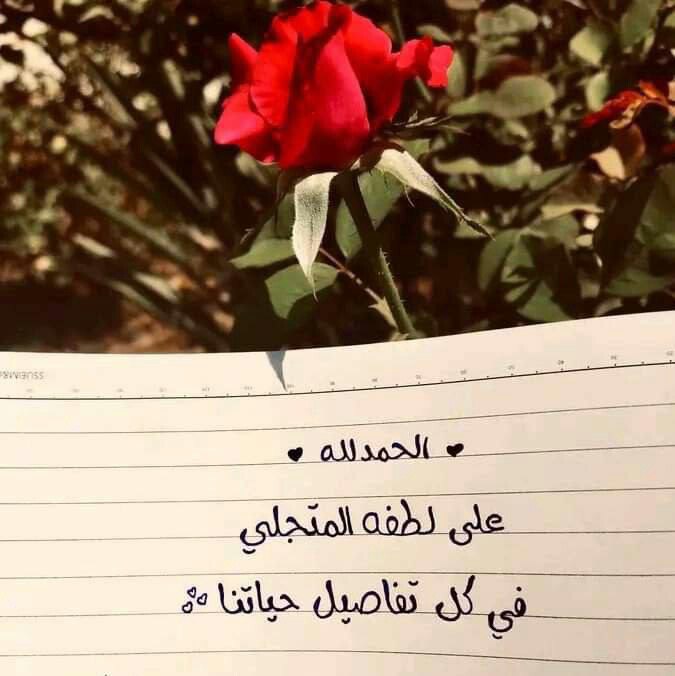 ♥ الحمدلله ♥
على لطفه المتجلي
في كل تفاصيل حياتنا